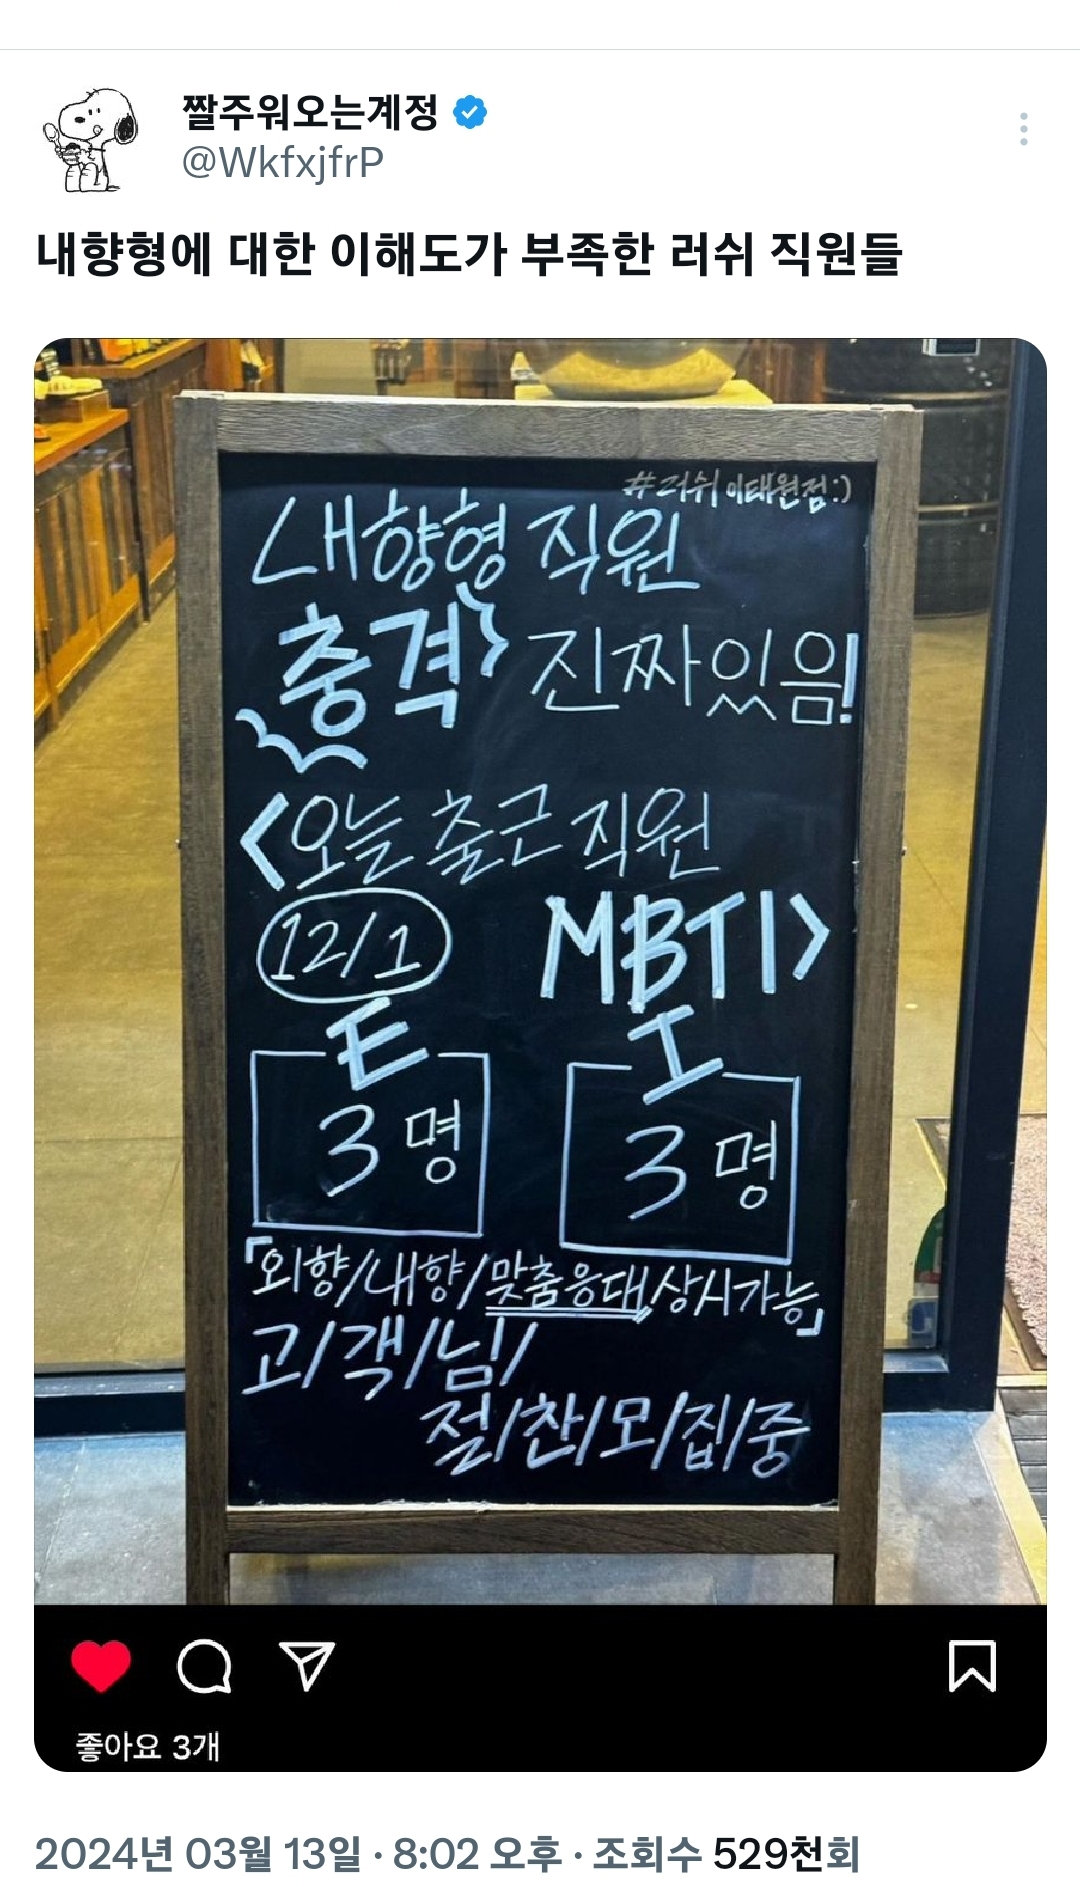 짤주워오는계정
@WkfxjfrP
내향형에 대한 이해도가 부족한 러쉬 직원들
#러쉬 이태원점:)
내향형 직원
충격 진짜있음!
<오늘 출근 직원
12/1 MBTI>
E I
3명 3명
「외향/내향/맞춤응대상시가능」
고/객/님/
절/찬/모/집/중
좋아요 3개
2024년 03월 13일 · 8:02 오후 · 조회수 529천회